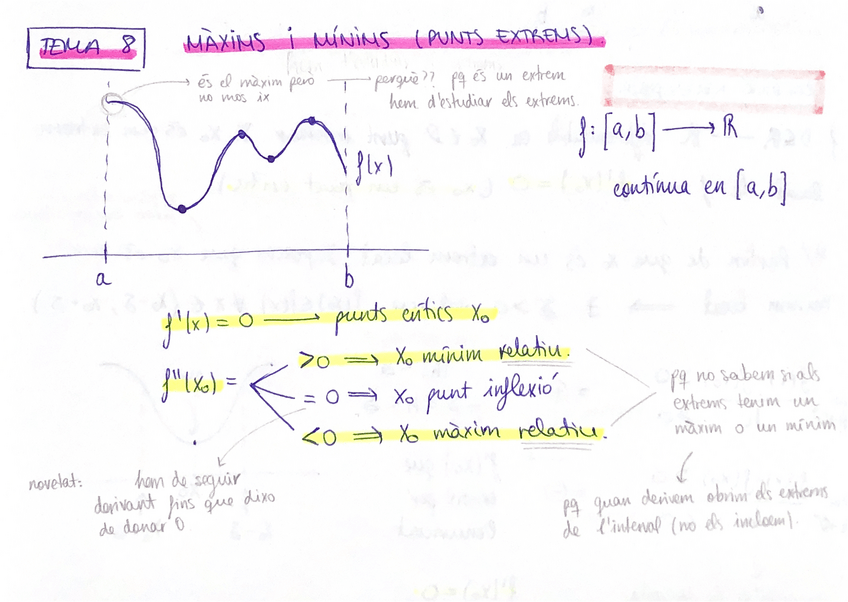 TEMA 8 MÀXIMS i MÍNIMS (PUNTS EXTREMS).
és el màxim però
no mos ix
perquè?? pq és un extrem
hem d'estudiar els extrems.
f: [a,b] → R
contínua en [a,b]
f(x)
a b
f'(x) = 0 → punts crítics x₀
f''(x₀) =
>0 ⇒ x₀ mínim relatiu.
= 0 ⇒ x₀ punt inflexió
<0 ⇒ x₀ màxim relatiu.
pq no sabem si als
extrems tenim un
màxim o un mínim
novetat: hem de seguir
derivant fins que dixo
de donar 0
pq quan derivem obrim els extrems
de l'interval (no els incloem).